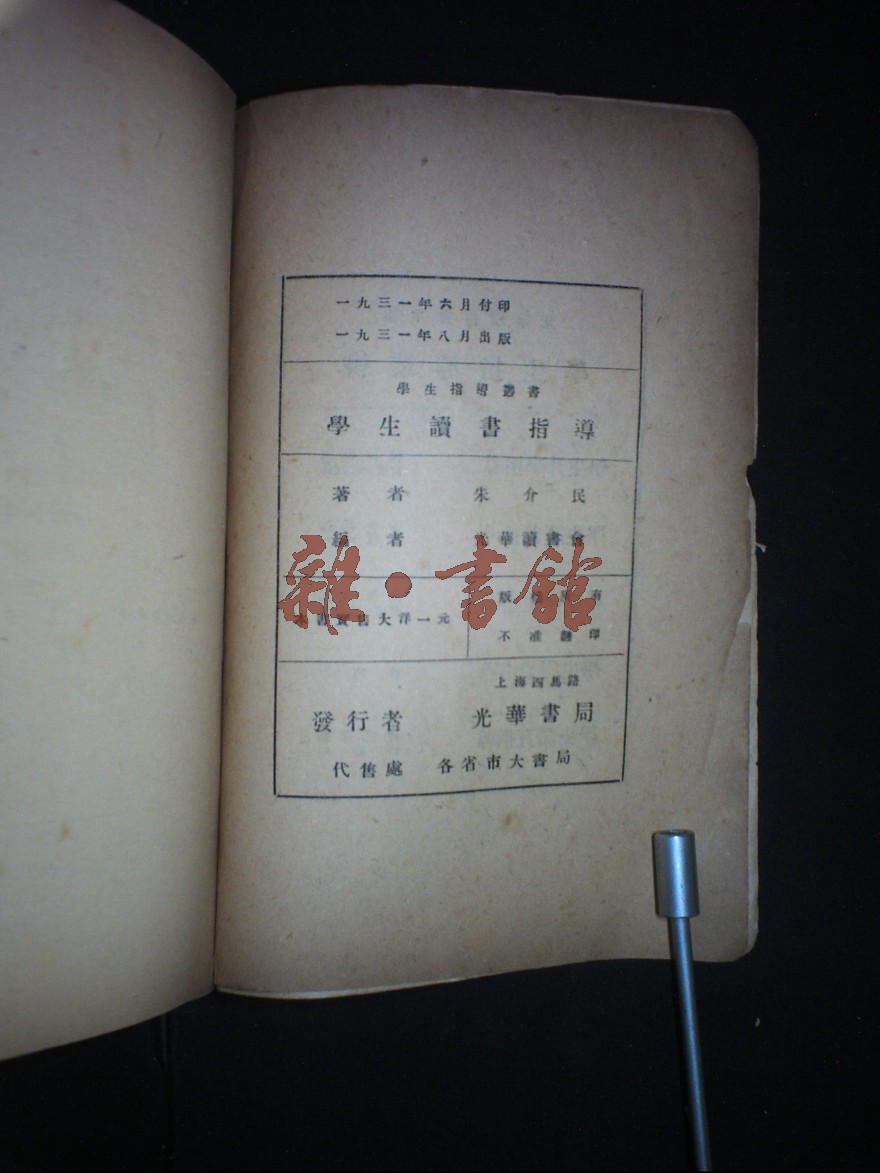 一九三一年六月付印
一九三一年八月出版
學生指導叢書
學生讀書指導
著者 朱介民
編者 光華讀書會
雜·書館
本書實售大洋一元
版權所有
不准翻印
上海四馬路
發行者 光華書局
代售處 各省市大書局